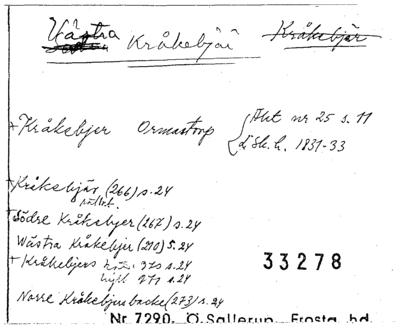 Västra Kråkebjär Kråkebjär
+ Kråkebjer Ormastorp { Akt nr 25 s. 11
L Sk. h. 1831-33
+ Kråkebjär (266) s. 24
+ Södre Kråkebjer (267) s. 24
Wästra Kråkebjer (270) S. 24
+ Kråkebjers 271 s. 24
271 s. 24
33278
Norre Kråkebjersbacke (273) s. 24
Nr 7290. Ö. Sallerup. Frosta hd.